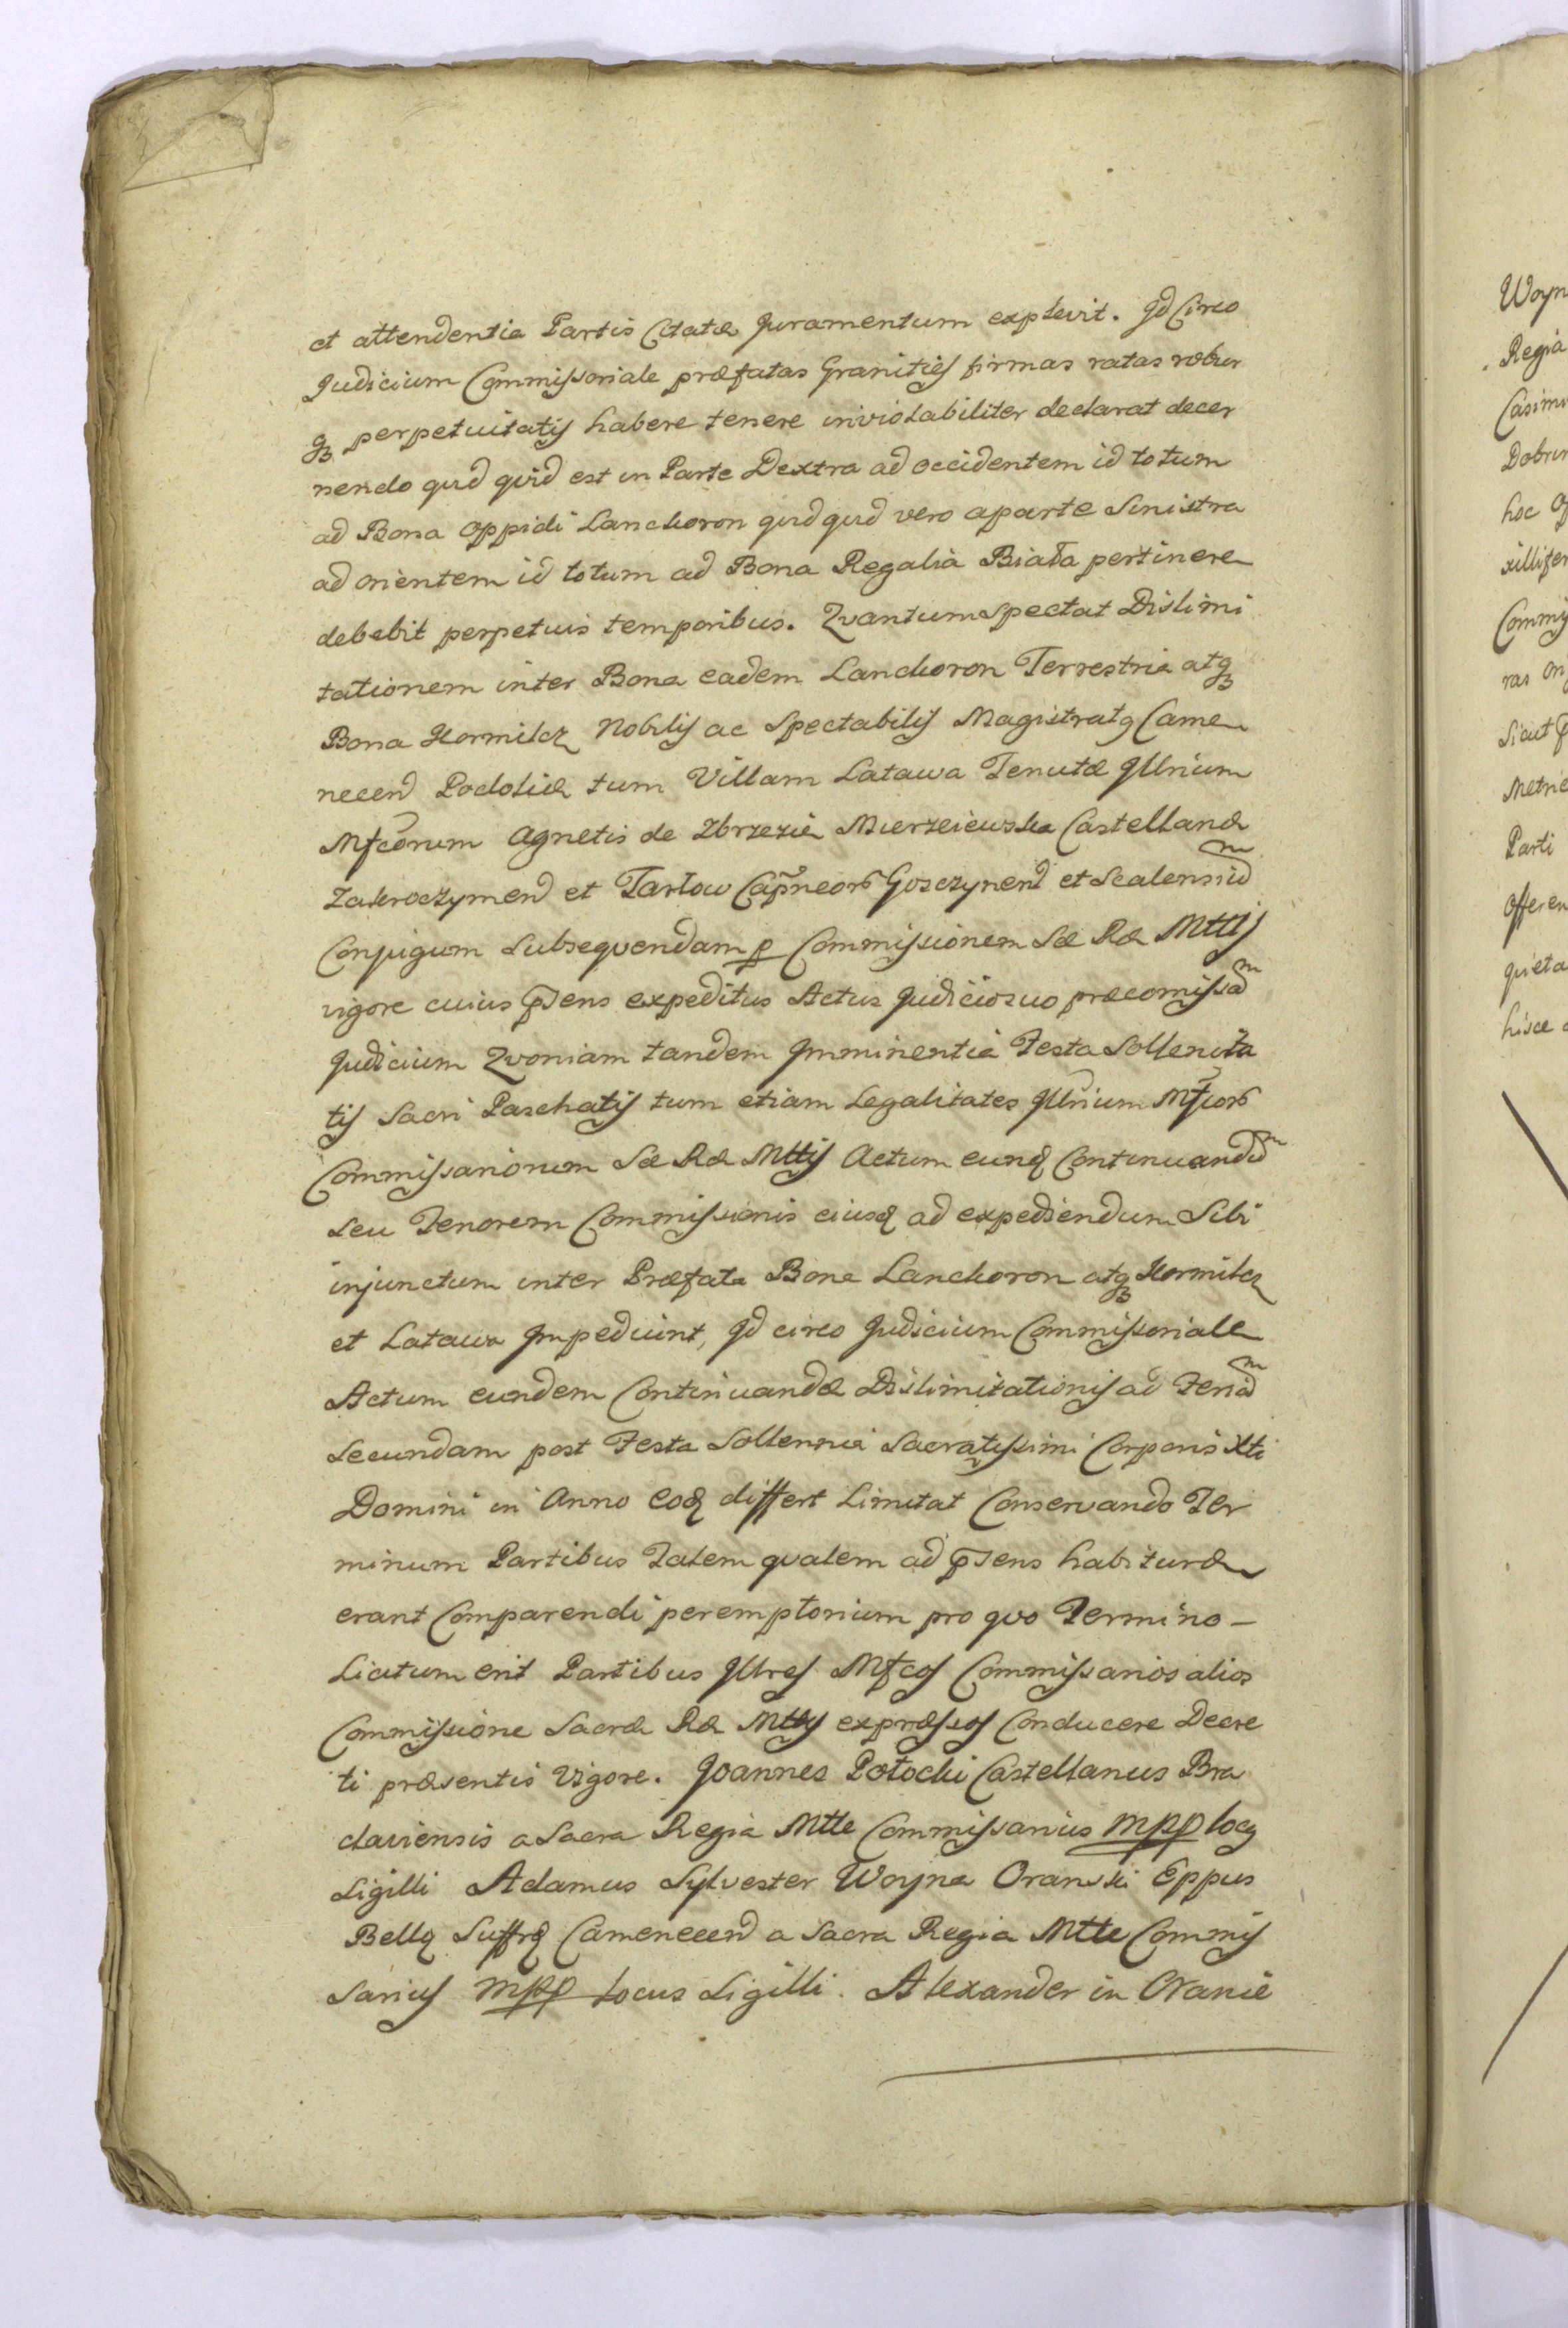 et attendentia Partis Citatæ Juramentum explevit. Jd Circo
Judicium Commissoriale præfatas Granities firmas ratas robur
q3 perpetuitatis habere tenere inviolabiliter declarat decer
nendo quid quid est in Parte Dextra ad occidentem id totum
ad Bona Oppidi Lanckoron quidquid vero aparte Sinistra
ad orientem id totum ad Bona Regalia Biała pertinere
debebit perpetuis temporibus. Quantum Spectat Dislimi
tationem inter Bona eadem Lanckoron Terrestria atq3
Bona Hormilcz Nobilis ac Spectabilis Magistratq Came
necen Podoliæ tum Villam Latawa Tenutæ Jllrium
Mfcorum Agnetis de Zbrzezie Mierzeiewska Castellanæ
Zakroczymen et Tarlow Capneor Goszczynen et Scalensium
Conjugum Subsequendam p Commissionem Sæ Ræ Mttis
vigore cuius psens expeditus Actus Judicio suo præcomissam
Judicium Quoniam tandem Jmminentia Festa Sollenita
tis Sacri Paschatis tum etiam Legalitates Jllrium Mfcor
Commissariorum Sæ Ræ Mttis Actum eund Continuandum
Seu Tenorem Commissionis eiusd ad expediendum Sibi
injunctum inter Præfata Bona Lanckoron atq3 Hormilcz
et Latawa Jmpediunt, Jd circo Judicium Commissoriale
Actum eundem Continuandæ Dislimitationis ad Feriam
Secundam post Festa Sollennia Sacratissimi Corporis Xti
Domini in Anno eod differt Limitat Conservando Ter
minum Partibus Talem qualem ad psens habituræ
erant Comparendi peremptorium pro quo Termino –
Licitum erit Partibus Jllres Mfcos Commissarios alios
Commissione Sacræ Ræ Mttis expræssos Conducere Decre
ti præsentis Vigore. Joannes Potocki Castellanus Bra
claviensis a Sacra Regia Mtte Commissarius mpp locq
Sigilli Adamus Sylvester Woyna Oranski Eppus
Bellq Suffrq Camenecen a Sacra Regia Mtte Commis
sarius mpp Locus Sigilli. Alexander in Oranie
Woyn
Regia
Casimi
Dobrin
hoc
Commis
ras
Sicut
Metri
Parti
Offeren
quieta
hisce